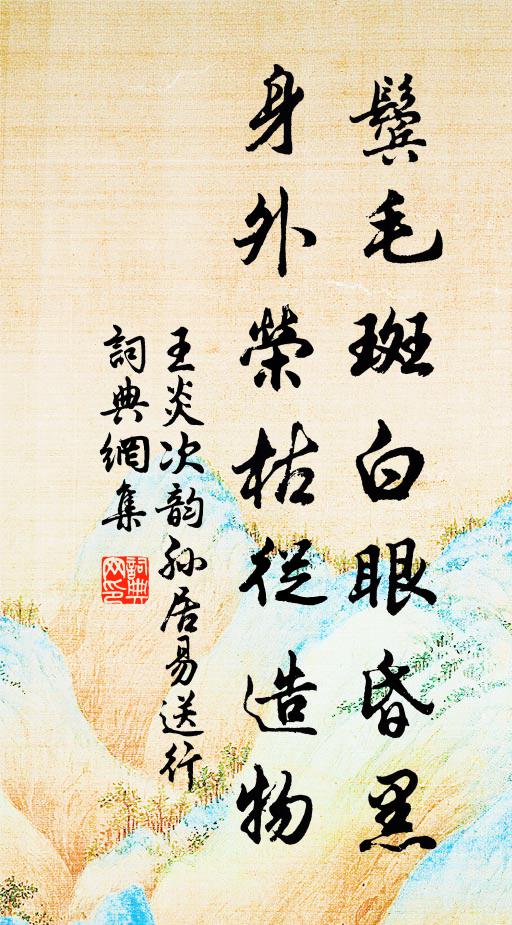 鬓毛斑白眼昏黑
身外榮枯從造物
王炎次韵孙居易送行
詞典網集
詞典網印